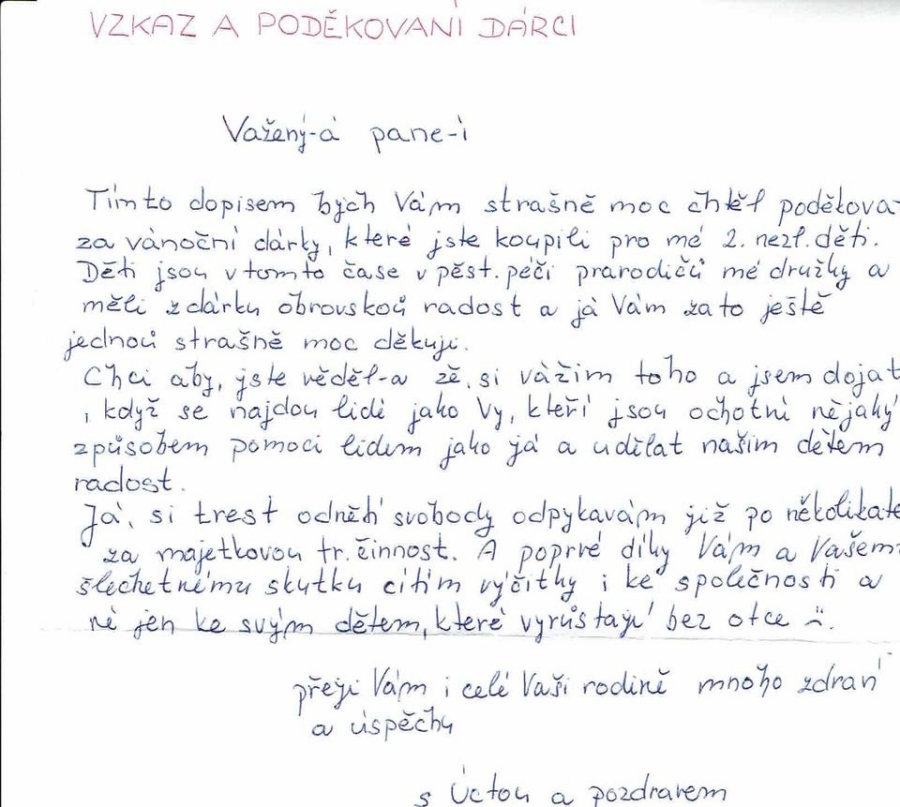 VZKAZ A PODĚKOVANÍ DÁRCI
Vážený-á pane-í
Tímto dopisem bých Vám strašně moc chtěl poděkova
za vánoční dárky, které jste koupili pro mé 2. nezl. děti.
Děti jsou v tomto čase v pěst. péči prarodičů mé družky a
měli z dárku obrovskoů radost a já Vám za to ještě
jednoů strašně moc děkuji.
Chci aby, jste věděl-a zě, si vážim toho a jsem dojat
, když se najdou lidé jako Vy, kteří jsou ochotní nějaký
způsobem pomoci lidem jako já a udělat našim dětem
radost.
Já, si trest odnětí svobody odpykavám již po několikate
za majetkovou tr. činnost. A poprvé díky Vám a Vašem
šlechetnému skutku cítím výčitky i ke společnosti a
né jen ke svým dětem, které vyrůstají bez otce :-(.
přeji Vám i celé Vaší rodině mnoho zdraní
a úspěchu
s Úctou a pozdravem